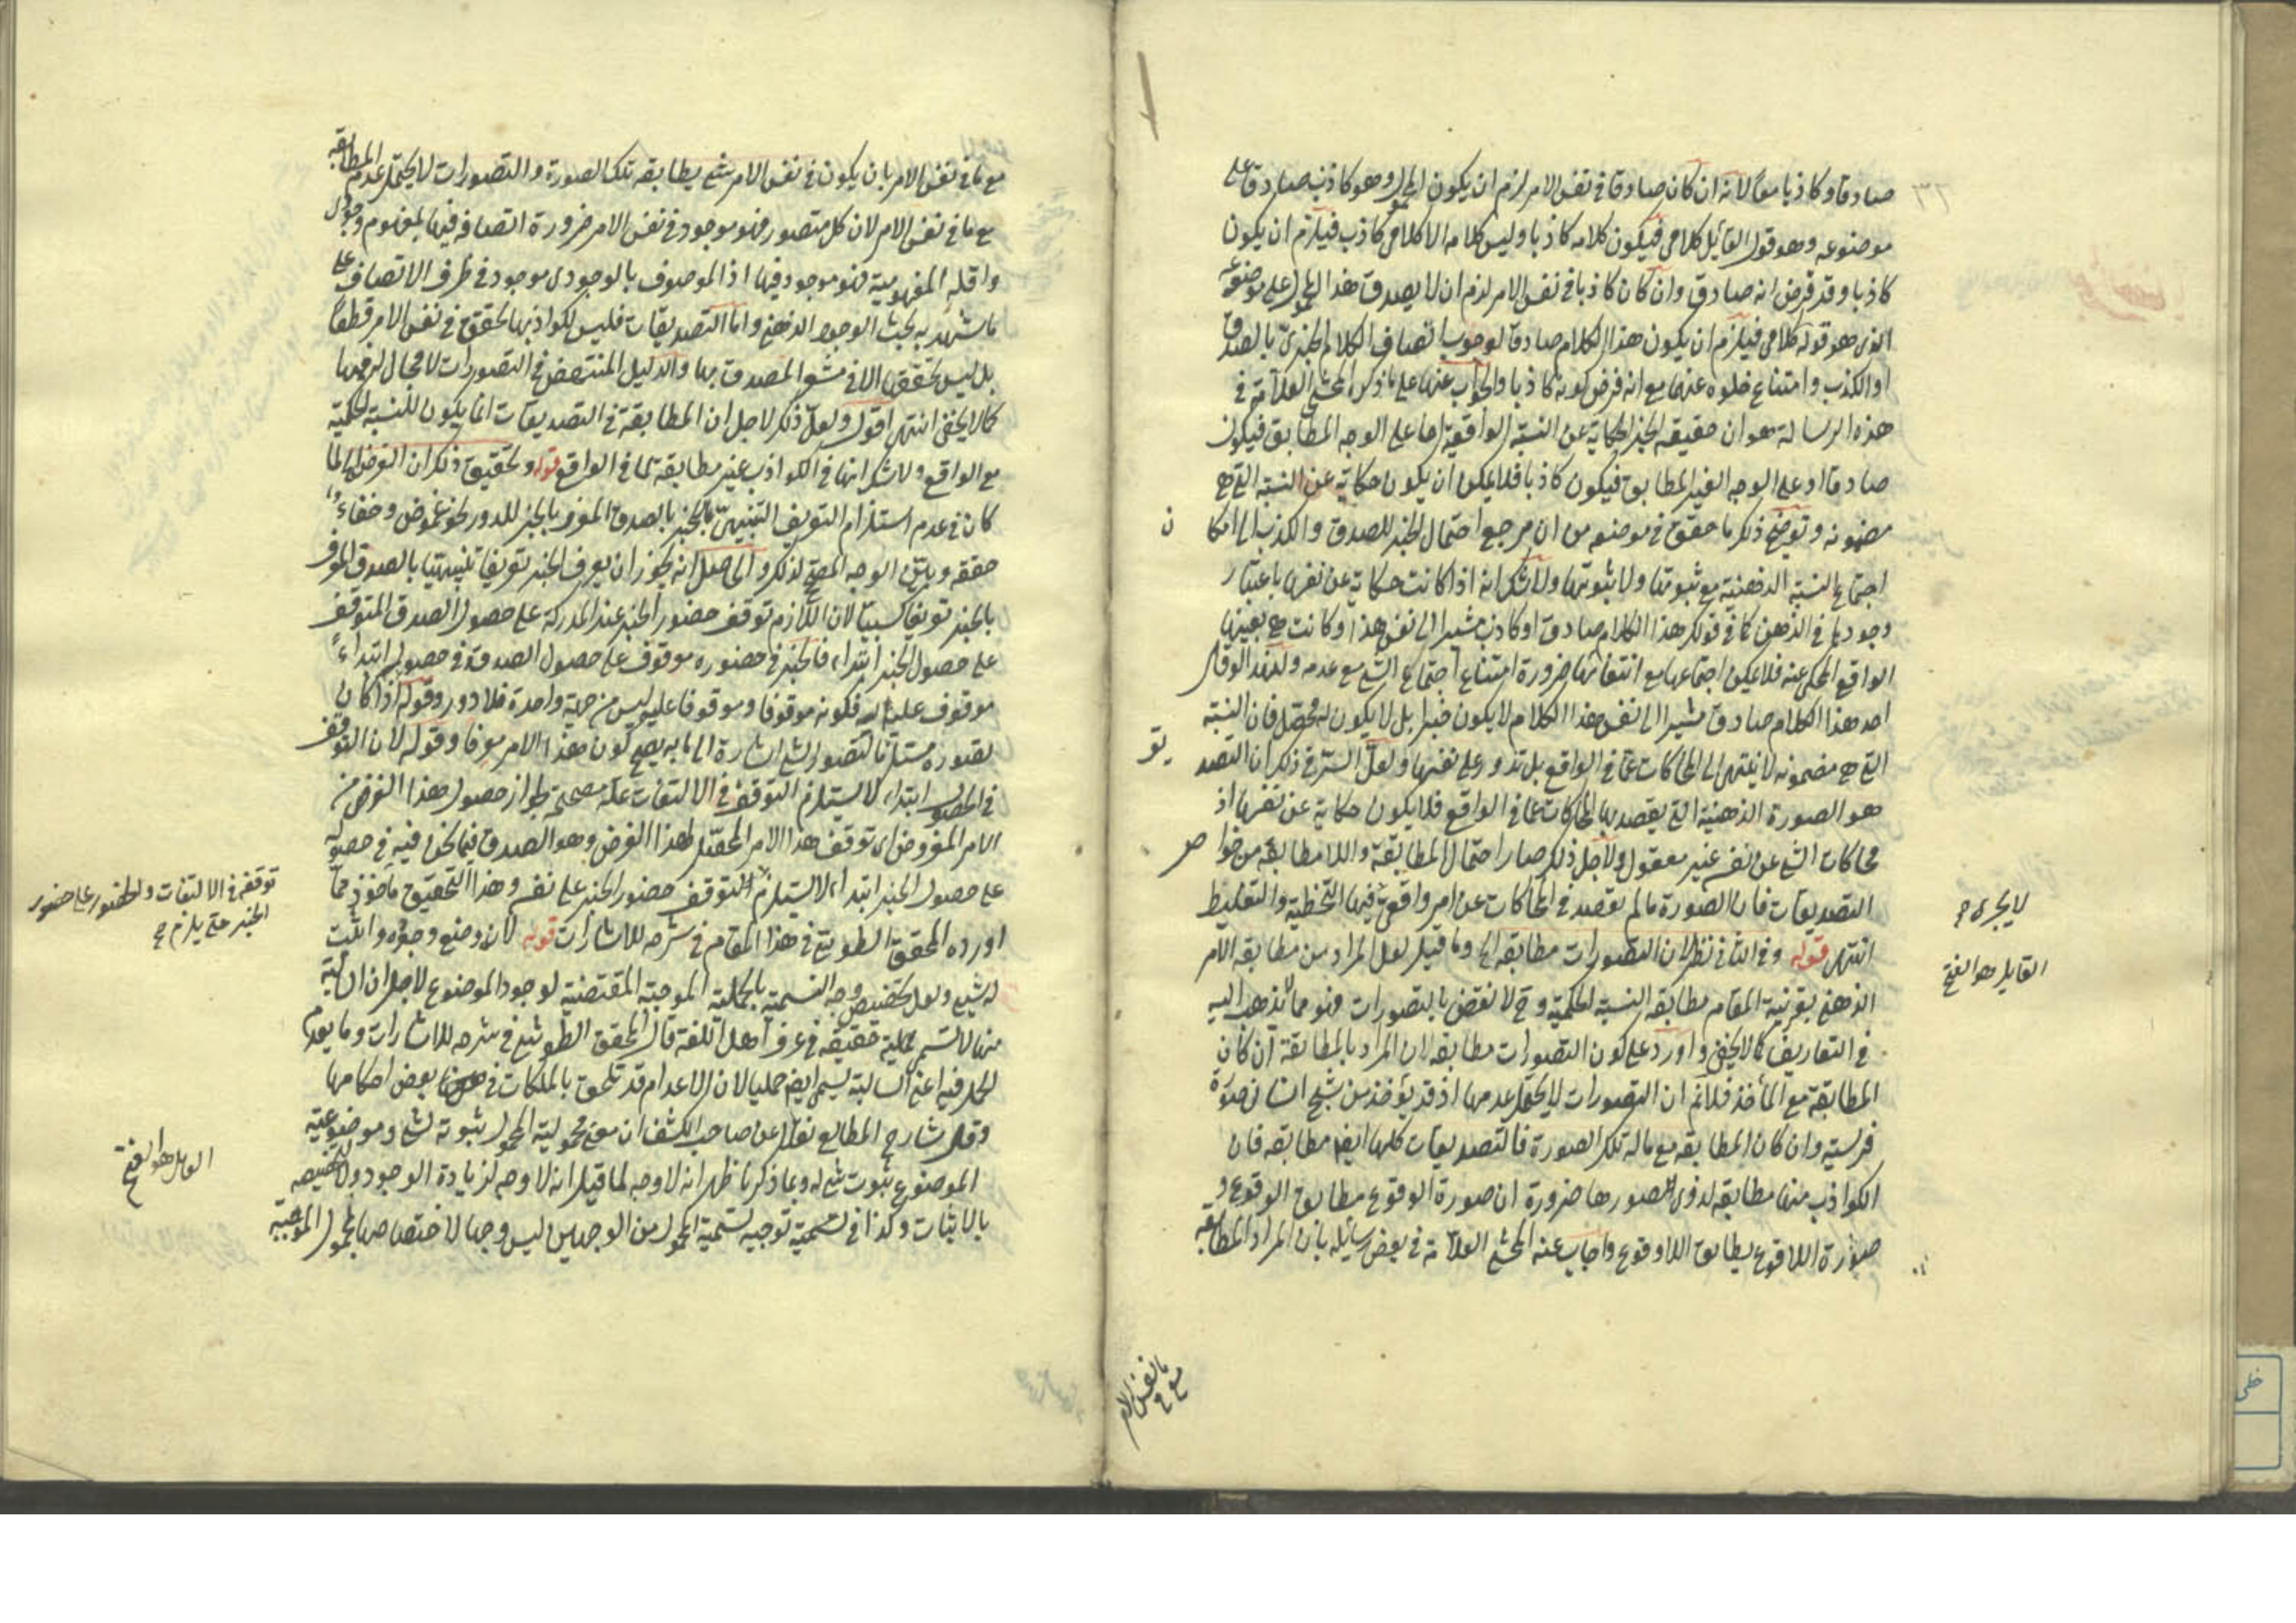 صادقا وكاذبا معا لانه ان كان صادقا في نفس الامر لزم ان يكون المحمول وهو كاذب صادقا على
موضوعه وهو قول القائل كلامي فيكون كلامه كاذبا وليس كلامه الا كلامي كاذب فيلزم ان يكون
كاذبا وقد فرض انه صادق وان كان كاذبا في نفس الامر لزم ان لا يصدق هذا المحمول على موضوعه
الذي هو قوله كلامي فيلزم ان يكون هذا الكلام صادقا لوجوب اتصاف الكلام الخبري بالصدق
او الكذب وامتناع خلوه عنهما مع انه فرض كونه كاذبا والجواب عنها على ما ذكر المحشي العلامة في
هذه الرسالة هو ان حقيقة الخبر الحكاية عن النسبة الواقعية اما على الوجه المطابق فيكون
صادقا او على الوجه الغير المطابق فيكون كاذبا فلا يمكن ان يكون حكاية عن النسبة التي هي
مضمونه وتوضيح ذلك ما حقق في موضعه من ان مرجع احتمال الخبر للصدق والكذب الى امكان
اجتماع النسبة الذهنية مع ثبوتها ولا ثبوتها ولا شك انه اذا كانت حكاية عن نفسها باعتبار
وجودها في الذهن كما في قولك هذا الكلام صادق او كاذب مشيرا الى نفس هذا وكانت هي بعينها
الواقع المحكي عنه فلا يمكن اجتماعها مع انتفائها ضرورة امتناع اجتماع الشيء مع عدمه ولهذا لو قال
احد هذا الكلام صادق مشيرا الى نفس هذا الكلام لا يكون خبرا بل لا يكون له محصل فان النسبة
التي هي مضمونه لا ينتهي الى المحاكات عما في الواقع بل تدور على نفسها ولعل السر في ذلك ان التصديق
هو الصورة الذهنية التي يقصد بها المحاكات عما في الواقع فلا يكون حكاية عن نفسها اذ
محاكات الشيء عن نفسه غير معقول ولاجل ذلك صار احتمال المطابقة واللامطابقة من خواص
التصديقات فان الصورة ما لم تقصد في المحاكات عن امر واقعي فيها التخطية والتغليط
انتهى قوله وفي الثاني نظر لان التصورات مطابقة الخ وما قيل لعل المراد من مطابقة الامر
الذهني بقرينة المقام مطابقة النسبة الحكمية وح لا نقض بالتصورات فهو مما تذهب اليه
في التعاريف كما لا يخفى واورد على كون التصورات مطابقة لان المراد بالمطابقة ان كان
المطابقة مع المأخذ فلا نم ان التصورات لا يحتمل عدمها اذ قد يؤخذ من شبح انسان صورة
فرسية وان كان المطابقة مع ما له تلك الصورة فالتصديقات كلها ايضا مطابقة فان
الكواذب منها مطابقة لذوي الصور ها ضرورة ان صورة الوقوع مطابق الوقوع و
صورة اللاوقوع يطابق اللاوقوع واجاب عنه المحشي العلامة في بعض رسائله بان المراد المطابقة
لا يجري ح
القايل هو الفتح
مع ما في نفس الامر
مع ما في نفس الامر بان يكون في نفس الامر شيء يطابقه تلك الصورة والتصورات لا يحتمل عدم المطابقة
مع ما في نفس الامر لان كل متصور فهو موجود في نفس الامر ضرورة اتصافه فيها بمفهوم وجودي
واقله المفهومية فهو موجود فيها اذ الموصوف بالوجودي موجود في ظرف الاتصاف على
ما شهد به بحث الوجود الذهني واما التصديقات فليس لكواذبها تحقق في نفس الامر قطعا
بل ليس تحققها الا في مشعر المصدق بها والدليل المنتهض في التصورات لا مجال له فيها
كما لا يخفى انتهى اقول ولعل ذكر لاجل ان المطابقة في التصديقات انما يكون للنسبة الحكمية
مع الواقع ولا شك انها في الكواذب غير مطابقة لما في الواقع قوله وتحقيق ذلك ان الغرض لما
كان في عدم استلزام التعريف التنبيهي للخبر بالصدق المعرف بالخبر للدور نحو غموض وخفاء
حققه وبين الوجه المصحح لذلك والحاصل انه يجوز ان يعرف الخبر تعريفا تنبيهيا بالصدق المعرف
بالخبر تعريفا كسبيا لان اللازم توقف حضور الخبر عند المدركة على حصول الصدق المتوقف
على حصول الخبر ابتداء فالخبر في حضوره موقوف على حصول الصدق وفي حصوله ابتداء
موقوف عليه له فكونه موقوفا وموقوفا عليه ليس من جهة واحدة فلا دور وقوله اذا كان
تصوره مستلزما لتصور الشيء اشارة الى ما به يصح كون هذا الامر معرفا وقوله لان التوقف
في الحصول ابتداء لا يستلزم التوقف في الالتفات علة مصححة لجواز حصول هذا الغرض من
الامر المفروض اي توقف هذا الامر المحصل لهذا الغرض وهو الصدق فيما نحن فيه في حصوله
على حصول الخبر ابتداء لا يستلزم التوقف حضور الخبر على نفسه وهذا التحقيق ماخوذ مما
اورده المحقق الطوسي في هذا المقام في شرحه للاشارات قوله لان وضع وجوده واثبت
له شيء ولعل تخصيص وجه التسمية بالحملية الموجبة المقتضية لوجود الموضوع لاجل ان السالبة
منها لا تسمى حملية حقيقة في عرف اهل اللغة قال المحقق الطوسي في شرحه للاشارات وما يعدم
الحمل فيه اعني السالبة يسمى ايضا حمليا لان الاعدام قد تلحق بالملكات في بعض احكامها
وقال شارح المطالع نقلا عن صاحب الكشف ان معنى محمولية المحمول ثبوته لشيء وموضوعية
الموضوع ثبوت شيء له وبما ذكرنا ظهر انه لا وجه لما قيل انه لا وجه لزيادة الوجود ولا لتخصيصه
بالاثبات وكذا في تسمية توجيه تسمية المحمول من الوجهين ليس وجها لاختصاصها بمحمول الموجبة
توقفه في الالتفات والحضور على حضور
الخبر حتى يلزم ح
القايل هو الفتح